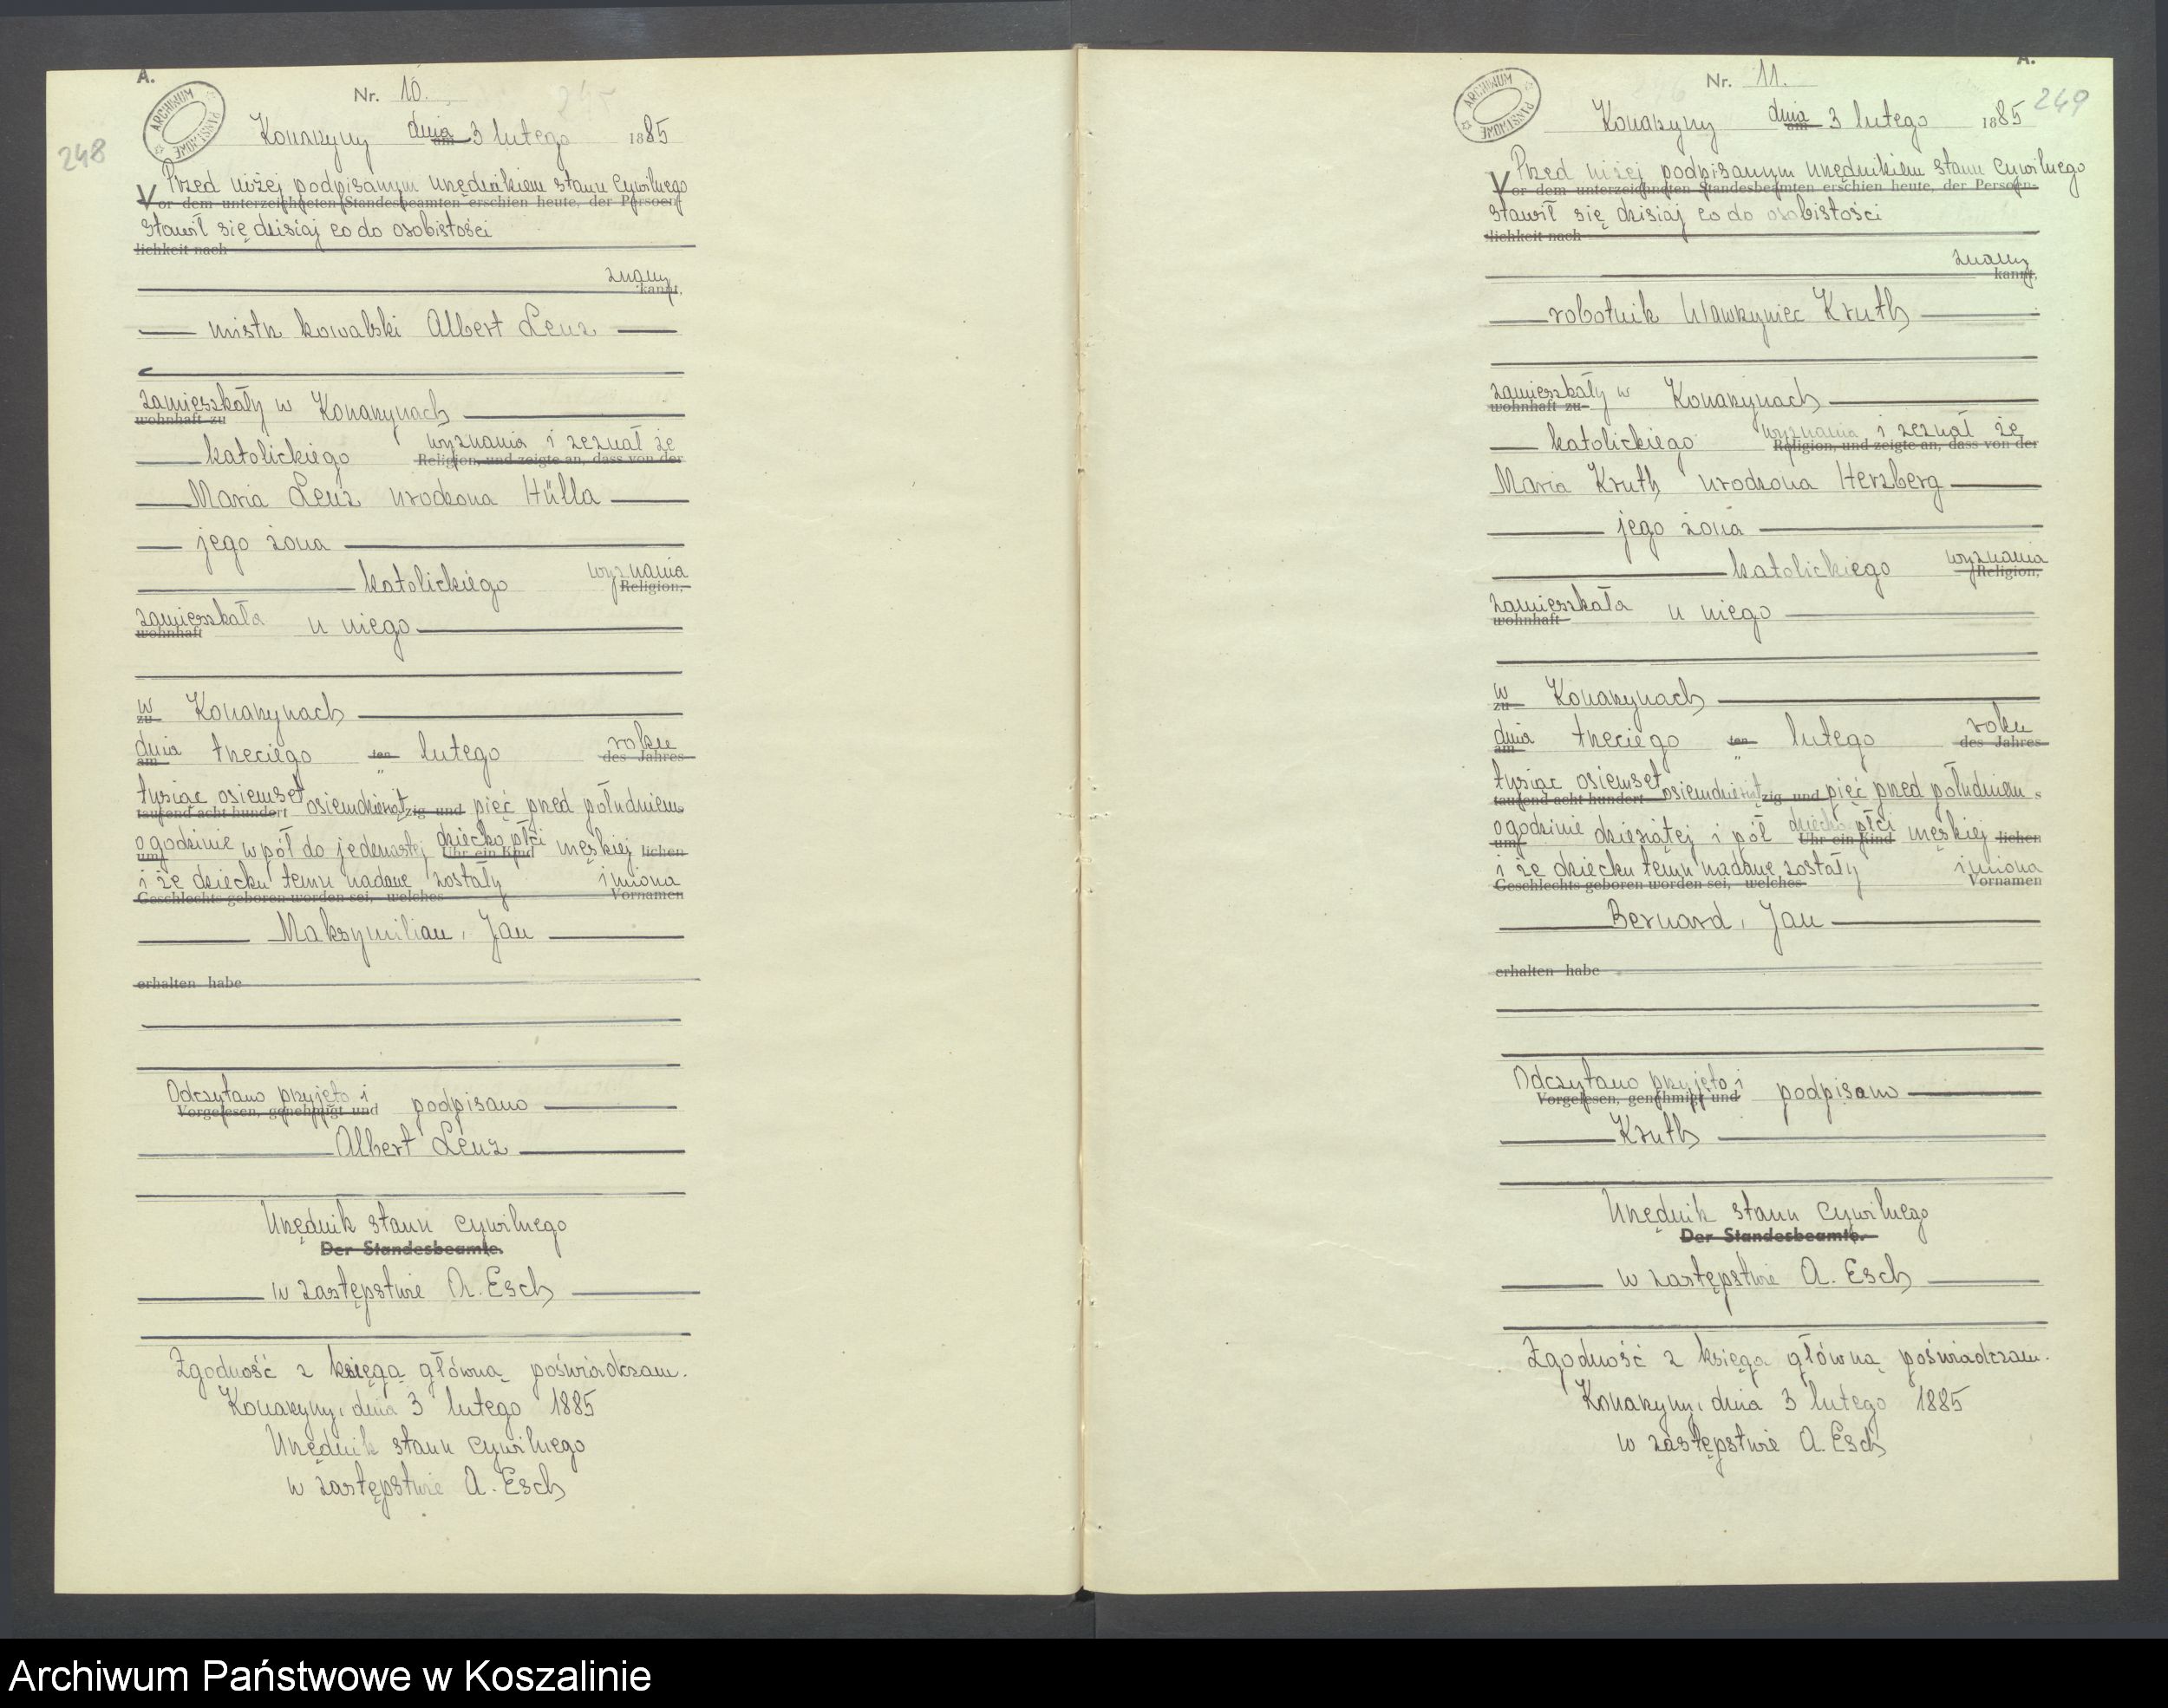 A.
ARCHIWUM PAŃSTWOWE
Nr. 10.
248
Konarzyny dnia am 3 lutego 1885
Przed niżej podpisanym urzędnikiem stanu cywilnego
Vor dem unterzeichneten Standesbeamten erschien heute, der Persoen-
stawił się dzisiaj co do osobistości
lichkeit nach
znany
kannt,
mistrz kowalski Albert Lenz
zamieszkały w Konarzynach
wohnhaft zu
katolickiego wyznania i zeznał że
Religion, und zeigte an, dass von der
Maria Lenz urodzona Hülla
jego żona
katolickiego wyznania
Religion,
zamieszkała u niego
wohnhaft
w Konarzynach
zu
dnia trzeciego ten lutego roku
am des Jahres
tysiąc osiemset osiemdziesiąt zig und pięć przed południem
taufend acht hundert
o godzinie w pół do jedenastej dziecko płci męskiej lichen
umf Uhr ein Kind
i że dziecku temu nadane zostały imiona
Geschlechts geboren worden sei, welches Vornamen
Maksymilian, Jan
erhalten habe
Odczytano przyjęto i podpisano
Vorgelesen, genehmigt und
Albert Lenz
Urzędnik stanu cywilnego
Der Standesbeamte.
w zastępstwie A. Esch
Zgodność z księgą główną poświadczam.
Konarzyny, dnia 3 lutego 1885
Urzędnik stanu cywilnego
w zastępstwie A. Esch
A.
ARCHIWUM PAŃSTWOWE
Nr. 11.
249
Konarzyny dnia am 3 lutego 1885
Przed niżej podpisanym urzędnikiem stanu cywilnego
Vor dem unterzeichneten Standesbeamten erschien heute, der Persoen-
stawił się dzisiaj co do osobistości
lichkeit nach
znany
kannt,
robotnik Wawrzyniec Kruth
zamieszkały w Konarzynach
wohnhaft zu
katolickiego wyznania i zeznał że
Religion, und zeigte an, dass von der
Maria Kruth urodzona Herzberg
jego żona
katolickiego wyznania
Religion,
zamieszkała u niego
wohnhaft
w Konarzynach
zu
dnia trzeciego ten lutego roku
am des Jahres
tysiąc osiemset osiemdziesiąt zig und pięć przed południem
taufend acht hundert
o godzinie dziesiątej i pół dziecko płci męskiej lichen
umf Uhr ein Kind
i że dziecku temu nadane zostały imiona
Geschlechts geboren worden sei, welches Vornamen
Bernard, Jan
erhalten habe
Odczytano przyjęto i podpisano
Vorgelesen, genehmigt und
Kruth
Urzędnik stanu cywilnego
Der Standesbeamte.
w zastępstwie A. Esch
Zgodność z księgą główną poświadczam.
Konarzyny, dnia 3 lutego 1885
w zastępstwie A. Esch
Archiwum Państwowe w Koszalinie